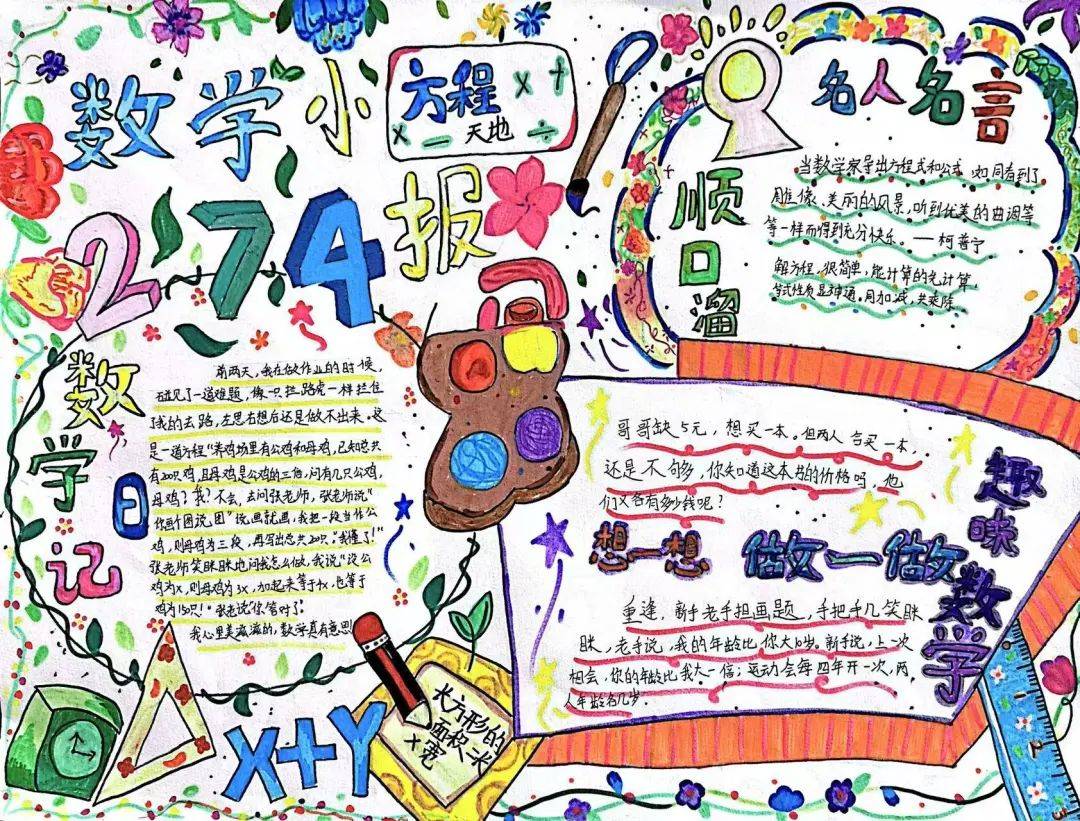 数学小报
方程
天地
× + × − ÷
274
名人名言
当数学家导出方程式和公式,如同看到了
雕像、美丽的风景,听到优美的曲调等
等一样而得到充分快乐。——柯普宁
顺口溜
解方程,很简单,能计算的先计算,
等式性质显神通。同加、减,共乘除
数学日记
前两天,我在做作业的时候,
碰见了一道难题,像一只拦路虎一样拦住
了我的去路,左思右想后还是做不出来。这
是一道方程“养鸡场里有公鸡和母鸡,已知总共
有200只鸡,且母鸡是公鸡的三倍,问有几只公鸡,
母鸡?我?不会,去问张老师,张老师说“
你画个图说,图”说画就画,我把一段当作公
鸡,则母鸡为三段,再写出总共200只。“我懂了!”
张老师笑眯眯地问我怎么做,我说“设公
鸡为x,则母鸡为3x,加起来等于4x,也等于
鸡为150只!”张老说“你答对了”
我心里美滋滋的,数学真有意思!
哥哥缺5元,想买一本。但两人合买一本,
还是不够,你知道这本书的价格吗,他
们又各有多少钱呢?
趣味数学
想一想 做一做
重逢,新手老手担画题,手把手儿笑眯
眯,老手说,我的年龄比你大10岁。新手说,上一次
相会,你的年龄比我大一倍;运动会每四年开一次,两
人年龄各几岁.
X+Y
长方形的
面积:长
×宽